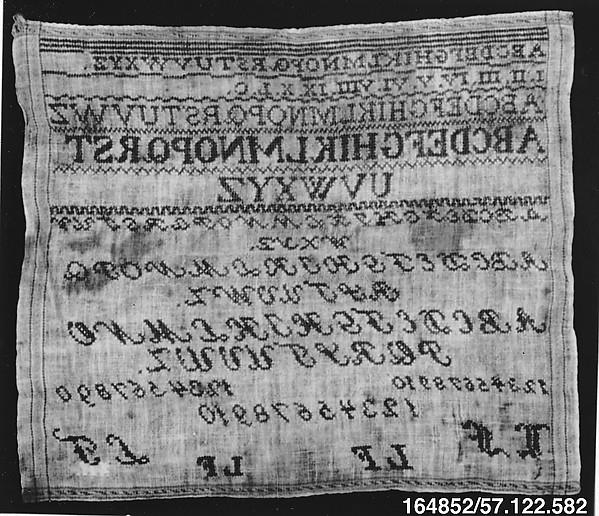 ABCDEFGHIKLMNOPQRSTUVWXYZ.
I.II.III.IV.V.VI. VIII.IX.X.L.C.
ABCDEFGHIKLMNOPQRSTUVWZ
ABCDEFGHIKLMNOPQRST
UVWXYZ
WXYZ
ABCDEFGHIKLMNOPQ
RSTUVWZ.
ABCDEFGHIKLMNO
PQRSTUVWZ.
12345678910 1234567890
12345678910
LF LF LF LF
164852/57.122.582